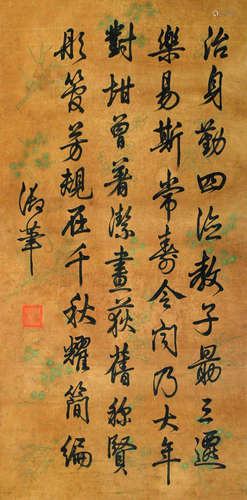 治身勤四德教子勗三遷
樂易斯常壽令聞乃大年
封坩曾著潔畫荻舊稱賢
彤管芳規在千秋耀簡編
御筆